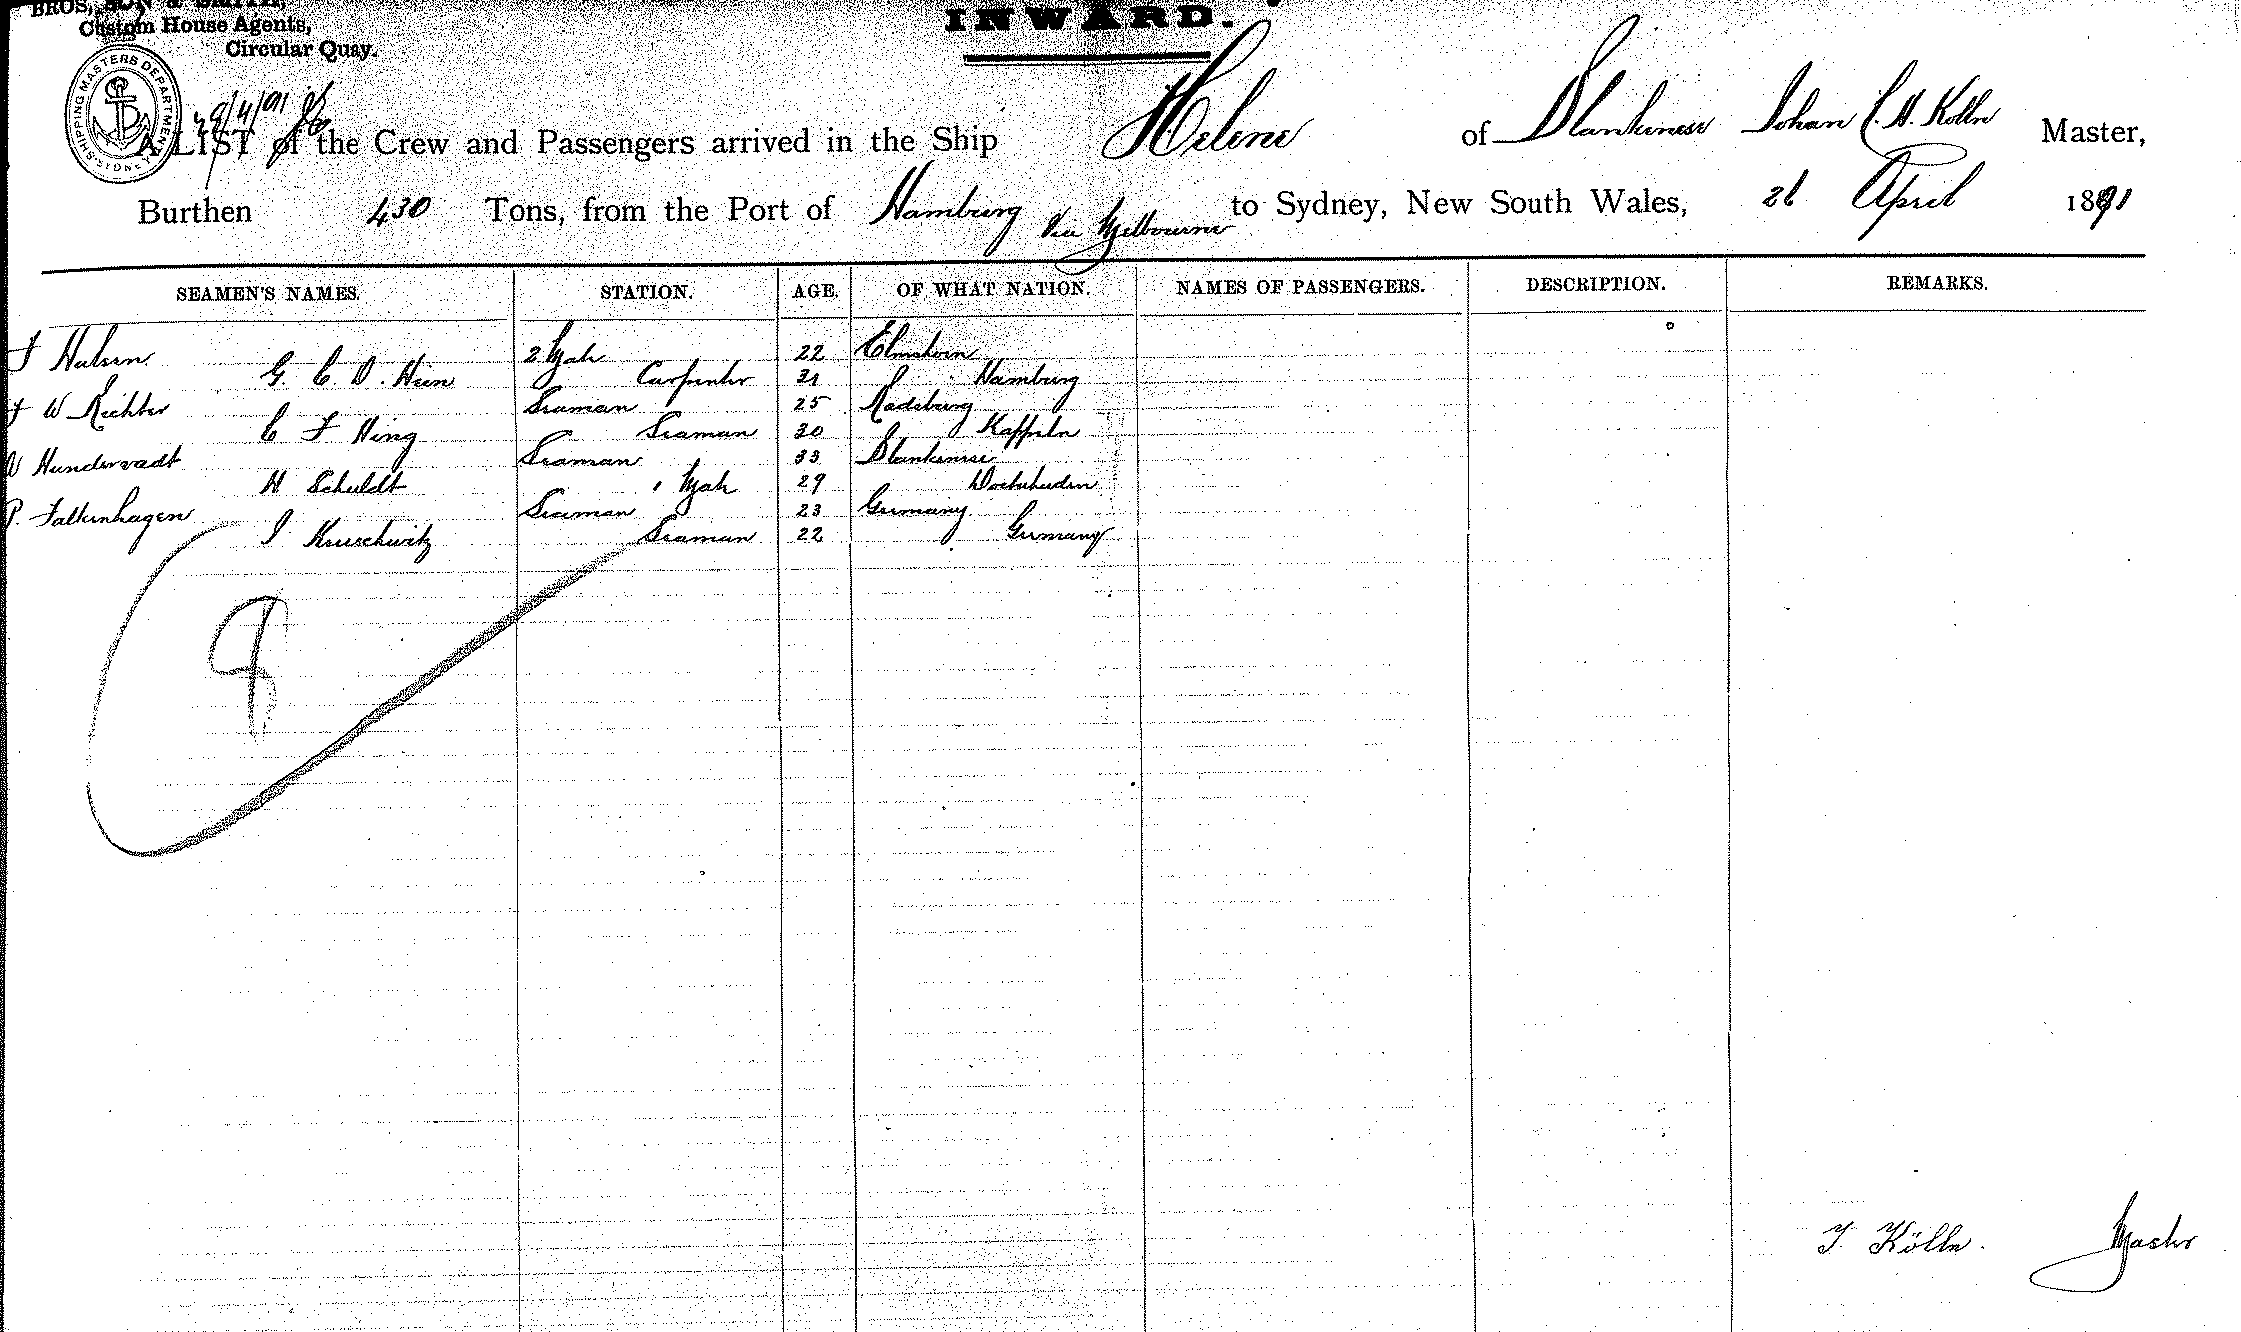 BROS, SON & SMITH,
Custom House Agents,
Circular Quay.
INWARD.
SHIPPING MASTERS DEPARTMENT SYDNEY
29/4/91
A LIST of the Crew and Passengers arrived in the Ship Helene of Blankenese Johan C. H. Kolln Master,
Burthen 430 Tons, from the Port of Hamburg Via Melbourne to Sydney, New South Wales, 28 April 1891
SEAMEN'S NAMES. STATION. AGE. OF WHAT NATION. NAMES OF PASSENGERS. DESCRIPTION. REMARKS.
J Halsen 2 Mate 22 Elmshorn
G. C. D. Hein Carpenter 31 Hamburg
J W Richter Seaman 25 Radeburg
C F Hing Seaman 30 Kappeln
W Hundervadt Seaman 33 Blankenese
H Schuldt 1 Mate 29 Dockenhuden
P. Falkenhagen Seaman 23 Germany
J Kruschwitz Seaman 22 Germany
J. Kölln. Master